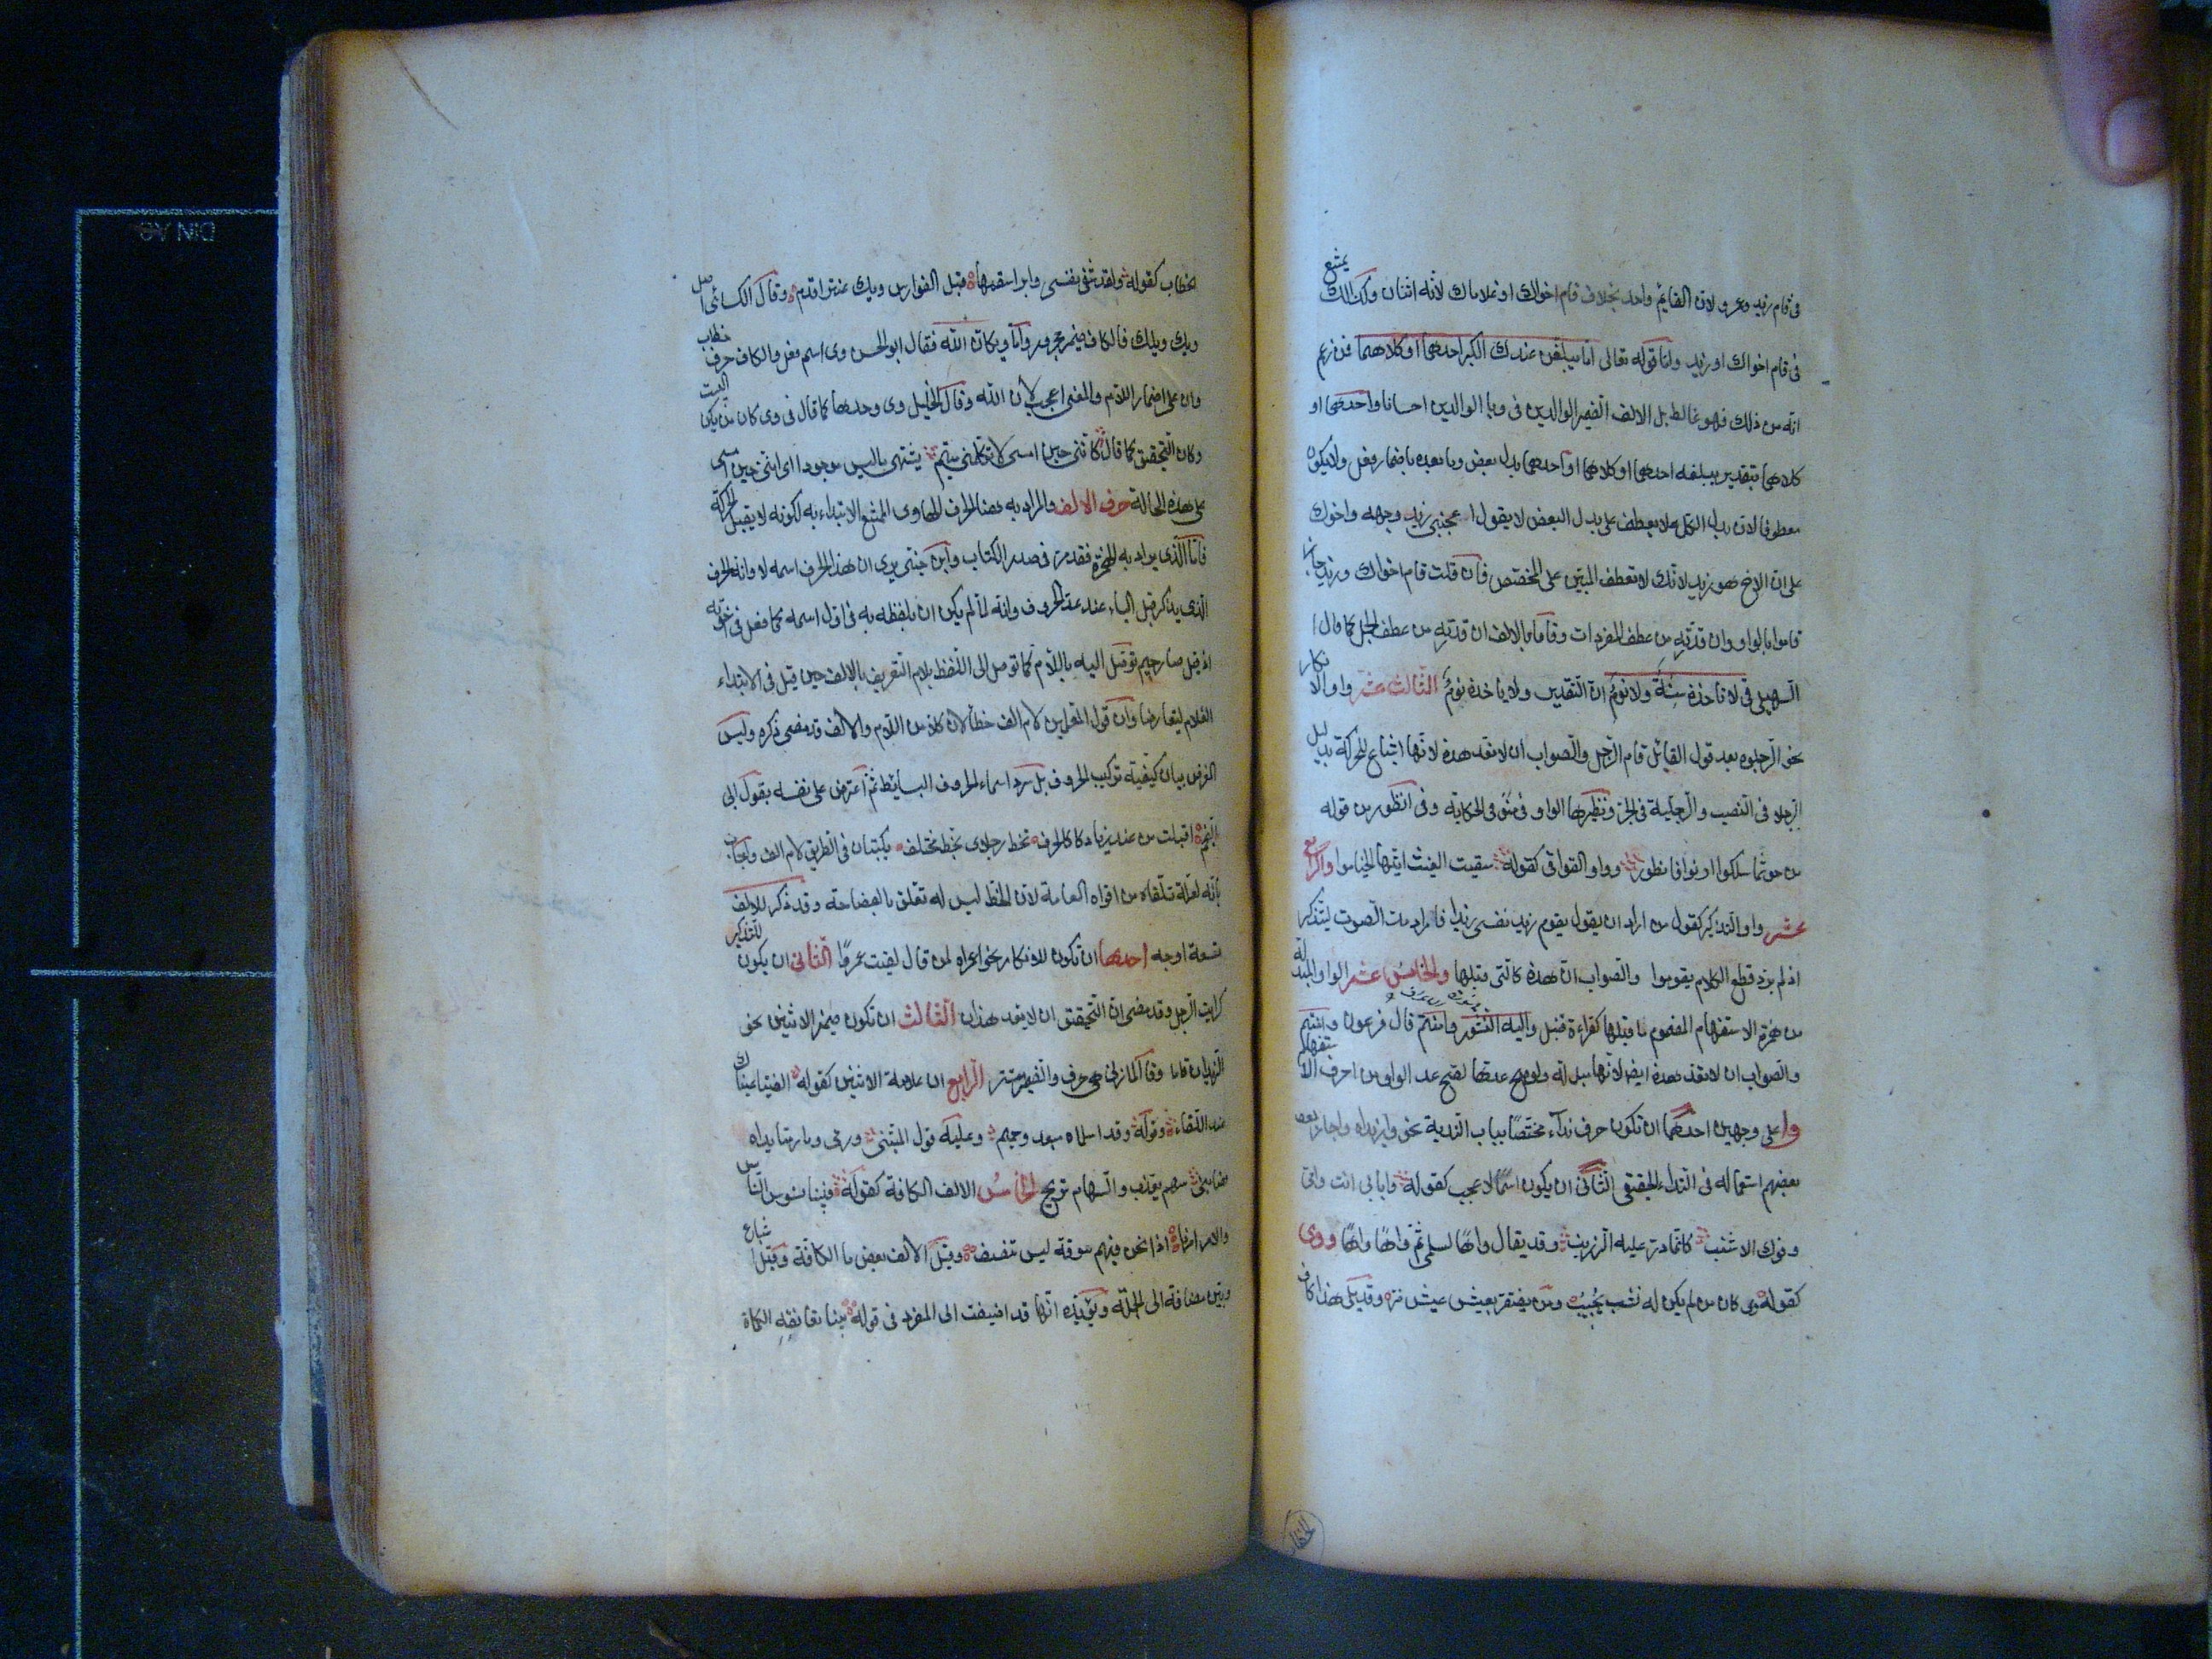 فى قام زيد وعمرو لان القايم واحد بخلاف قام اخواك او غلاماك لانه اثنان وكذلك يمتنع
فى قام اخواك او زيد واما قوله تعالى اما يبلغن عندك الكبر احدهما او كلاهما فمن زعم
انه من ذلك فهو غالط بل الالف ضمير الوالدين فى وبا الوالدين احسانا واحدهما او
كلاهما بتقدير يبلغه احدهما او كلاهما او احدهما بدل بعض وما بعده باضمار فعل ولا يكون
معطوفا لان بدل الكل لا يعطف على بدل البعض لا يقول اعجبنى زيد وجهه واخوك
على ان الاخ هو زيد لانك لا تعطف المبين على المخصص فان قلت قام اخواك وزيد جاز
قاموا بالواو وان قدرته من عطف المفردات وقاما بالالف ان قدرته من عطف الجمل كما قال ا
السهيلى فى لا تاخذه سنة ولا نوم ان التقدير ولا ياخذه نوم الثالث عشر واو الانكار
نحو الرجلوه بعد قول القايل قام الرجل والصواب ان لا تعد هذه لانها اشباع للحركة بدليل
الرجلاه فى النصب والرجليه فى الجر ونظيرها الواو فى منو فى الحكاية وفى انظور من قوله
من حوثما سلكوا ادنوا فانظور وواو القوافى كقوله سقيت الغيث ايتها الخيامو والرابع
عشر واو التذكير كقول من اراد ان يقول يقوم زيد نفسى زيدا فاراد مد الصوت ليتذكر
اذ لم يرد قطع الكلام يقومو والصواب ان هذه كالتى قبلها والخامس عشر الواو المبدلة
من همزة الاستفهام المضموم ما قبلها كقراءة قنبل واليه النشور وامنتم قال فرعون وامنتم
والصواب ان لا تعد هذه ايضا لانها مبدلة ولو صح عدها لصح عد الواو من احرف الاستفهام
وا على وجهين احدهما ان تكون حرف نداء مختصا بباب الندبة نحو وا زيداه واجاز بعض
بعضهم استعماله فى النداء الحقيقى الثانى ان يكون اسما لاعجب كقوله وا بابى انت وفى
وفوك الاشنب كانما ذر عليه الزرنب وقد يقال واها لسلمى ثم واها واها ووى
كقوله وى كان من لم يكن له نشب يحبب ومن يفتقر يعيش عيش ضر وقد يلى هذا كاف
الخطاب كقوله ولقد شفى نفسى وابرا سقمها قيل الفوارس ويك عنتر اقدم وقال الكسائى اصل
ويك ويلك فالكاف ضمير مجرور واما ويكان الله فقال ابو الحسن وى اسم فعل والكاف حرف خطاب
وان على اضمار اللام والمعنى اعجب لان الله وقال الخليل وى وحدها كما قال فى وى كان من يكن البيت
وكان للتحقيق كما قال كاننى حين امسى لا تكلمنى متيم يشتهى ما ليس موجودا اى اننى حين امسى
على هذه الحالة حرف الالف والمراد به هنا الحرف الهاوى الممتنع الابتداء به لكونه لا يقبل الحركة
فاما الذى يراد به الهمزة فقد مر فى صدر الكتاب وابن جنى يرى ان هذا الحرف اسمه لا وانه الحرف
الذى يذكر قبل الياء عند عد الحروف وانه لما لم يكن ان يلفظ به فى اول اسمه كما فعل فى اخوته
اذ قيل صاد جيم توصل اليه باللام كما توصل الى اللفظ بلام التعريف بالالف حين قيل فى الابتداء
الغلام ليتعارضا وان قول المعلمين لام الف خطا لان كلا من اللام والالف قد مضى ذكره وليس
الغرض بيان كيفية تركيب الحروف بل سرد اسماء الحروف البسايط ثم اعترض على نفسه بقول ابى
النجم اقبلت من عند زياد كالخرف تخط رجلاى بخط مختلف يكتبان فى الطريق لام الف واجاب
بانه لعله تلقاه من افواه العامة لان الخط ليس له تعلق بالفصاحة وقد ذكر للالف
تسعة اوجه احدها ان تكون للانكار نحو اعمراه لمن قال لقيت عمرا الثانى ان يكون للتذكير
كرايت الرجلا وقد مضى ان التحقيق ان لا يعد هذان الثالث ان تكون ضمير الاثنين نحو
الزيدان قاما وقال المازنى هى حرف والضمير مستتر الرابع ان علامة الاثنين كقوله الفيتا عيناك
عند القفاء وقوله وقد اسلماه مبعد وحميم وعليه قول المتنبى ورمى وما رمتا يداه
فصابنى سهم يعذب والسهام تريح الخامس الالف الكافة كقوله فبينا نسوس الناس
والامر امرنا اذا نحن فيهم سوقة ليس تنصف وقيل الالف بعض ما الكافة وقيل اشباع
وبين مضافة الى الجملة ويؤيده انها قد اضيفت الى المفرد فى قوله بينا تعانقه الكماة